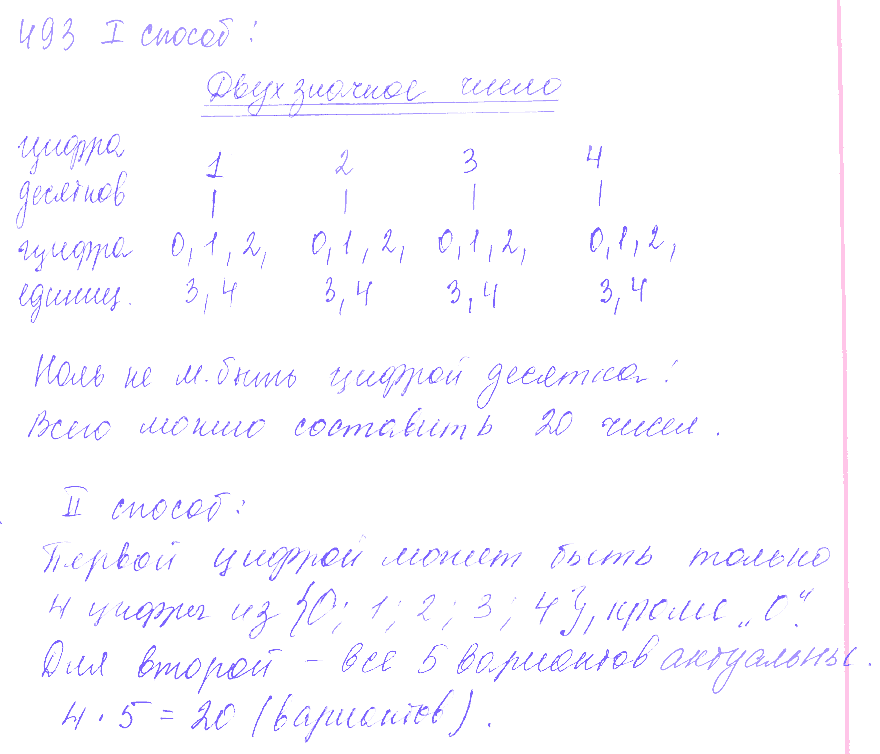 493 I способ:
Двухзначное число
цифра 1 2 3 4
десятков
цифра 0, 1, 2, 0, 1, 2, 0, 1, 2, 0, 1, 2,
единиц. 3, 4 3, 4 3, 4 3, 4
Ноль не м. быть цифрой десятка!
Всего можно составить 20 чисел.
II способ:
Первой цифрой может быть только
4 цифры из {0; 1; 2; 3; 4}, кроме „0".
Для второй - все 5 вариантов актуальны.
4 · 5 = 20 (вариантов).